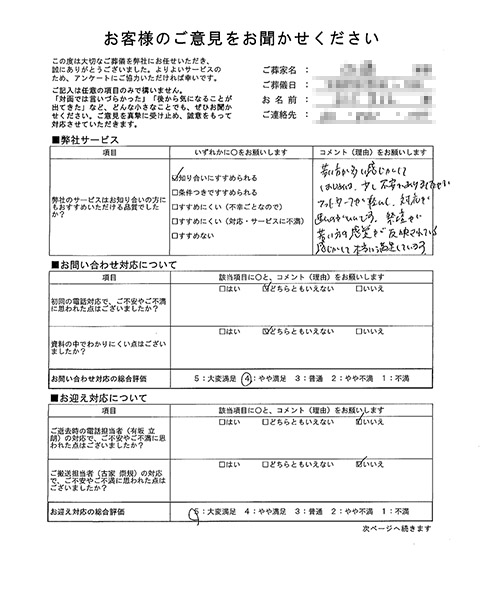 お客様のご意見をお聞かせください
この度は大切なご葬儀を弊社にお任せいただき、
誠にありがとうございました。よりよいサービスの
ため、アンケートにご協力いただければ幸いです。
ご記入は任意の項目のみで構いません。
「対面では言いづらかった」「後から気になることが
出てきた」など、どんな小さなことでも、ぜひお聞か
せください。ご意見を真摯に受け止め、誠意をもって
対応させていただきます。
ご葬家名：
ご葬儀日：
お名前：
ご連絡先：
■弊社サービス
項目 いずれかに○をお願いします コメント（理由）をお願いします
弊社のサービスはお知り合いの方に
もおすすめいただける品質でした
か？
☑知り合いにすすめられる
□条件つきですすめられる
□すすめにくい（不幸ごとなので）
□すすめにくい（対応・サービスに不満）
□すすめない
■お問い合わせ対応について
項目 該当項目に○と、コメント（理由）をお願いします
初回の電話対応で、ご不安やご不満
に思われた点はございましたか？
□はい ☑どちらともいえない □いいえ
資料の中でわかりにくい点はござい
ましたか？
□はい ☑どちらともいえない □いいえ
お問い合わせ対応の総合評価 5：大変満足 4：やや満足 3：普通 2：やや不満 1：不満
■お迎え対応について
項目 該当項目に○と、コメント（理由）をお願いします
ご逝去時の電話担当者（有坂 立
朗）の対応で、ご不安やご不満に思
われた点はございましたか？
□はい □どちらともいえない ☑いいえ
ご搬送担当者（古家 崇規）の対応
で、ご不安やご不満に思われた点は
ございましたか？
□はい □どちらともいえない ☑いいえ
お迎え対応の総合評価 5：大変満足 4：やや満足 3：普通 2：やや不満 1：不満
次ページへ続きます